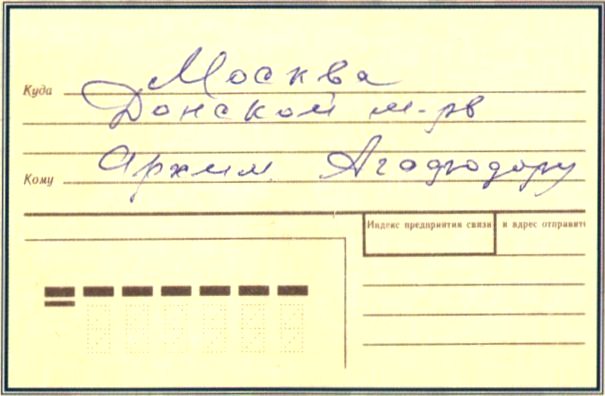 Куда Москва
Донской м-рь
Кому Архим. Агафодору
Индекс предприятия связи и адрес отправите